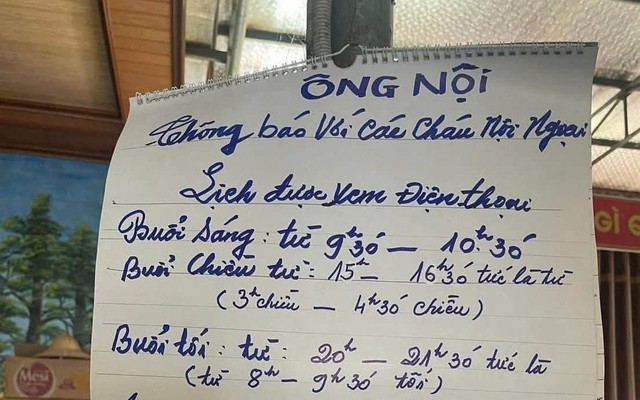 ÔNG NỘI
Thông báo Với các cháu Nội Ngoại
Lịch được xem Điện thoại
Buổi Sáng : từ 9h30 — 10h30
Buổi Chiều từ : 15h — 16h30 tức là từ
(3h chiều — 4h30 chiều)
Buổi tối : từ : 20h — 21h30 tức là
(từ 8h — 9h30 tối)
GÌ